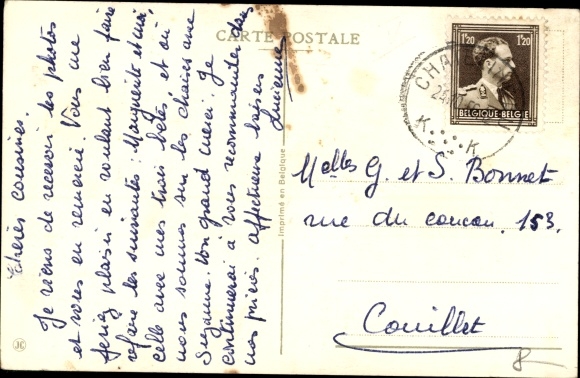 CARTE POSTALE
Chères cousines.
Je viens de recevoir les photos
et vous en remercie. Vous me
feriez plaisir en voulant bien faire
refaire les suivantes: Marguerite et moi,
celle avec mes trois bêtes, et où
nous sommes sur les chaises avec
Suzanne. Un grand merci. Je
continuerai à vous recommander dans
nos prières. Affectueux baisers
Lucienne
Imprimé en Belgique
1F20 1F20
BELGIQUE BELGIE
CHA
K K
Melles G. et S. Bonnet
rue du coucou. 153.
Couillet
JC